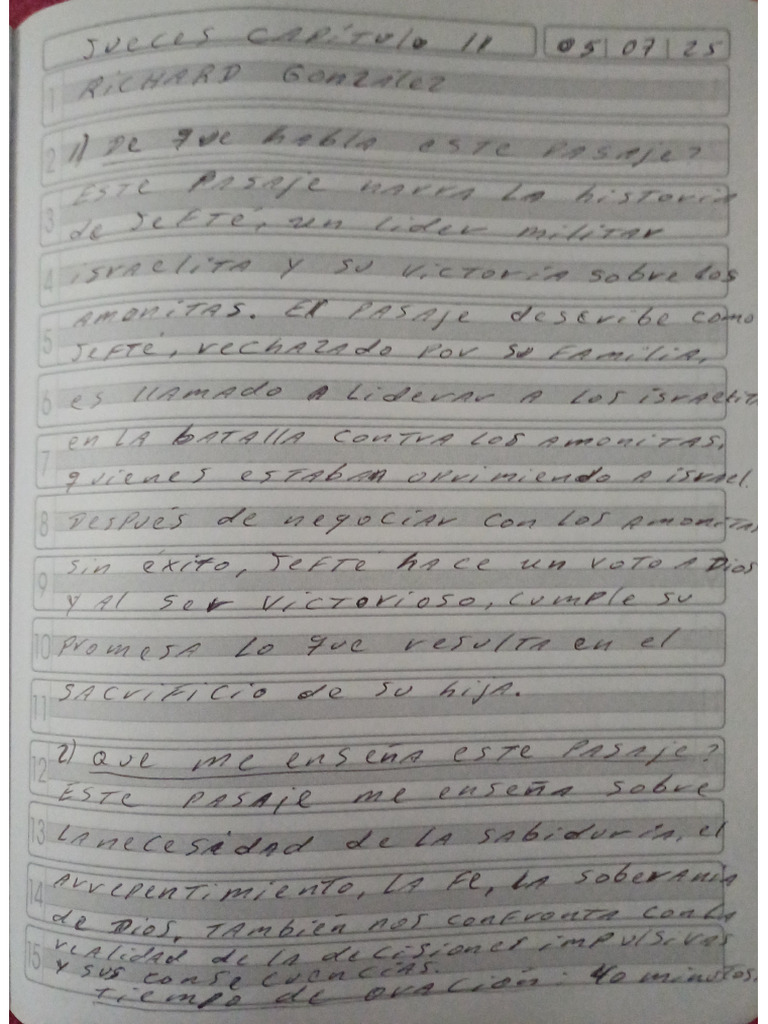 JUECES CAPÍTULO 11 05 | 07 | 25
1 RICHARD González
2 1) De que habla este pasaje?
Este pasaje narra la historia
3 de Jefté, un lider militar
4 israelita y su victoria sobre los
amonitas. El pasaje describe como
5 Jefté, rechazado por su familia,
6 es llamado a liderar a los israelit
en la batalla contra los amonitas,
7 quienes estaban oprimiendo a israel.
8 Después de negociar con los amonitas
9 sin éxito, Jefté hace un voto a Dios
y al ser victorioso, cumple su
10 promesa lo que resulta en el
11 sacrificio de su hija.
12 2) Que me enseña este pasaje?
Este pasaje me enseña sobre
13 la necesidad de la sabiduría, el
14 arrepentimiento, la fe, la soberania
de Dios, también nos confronta con la
15 realidad de la decisiones impulsivas
y sus consecuencias.
tiempo de oración: 40 minutos.